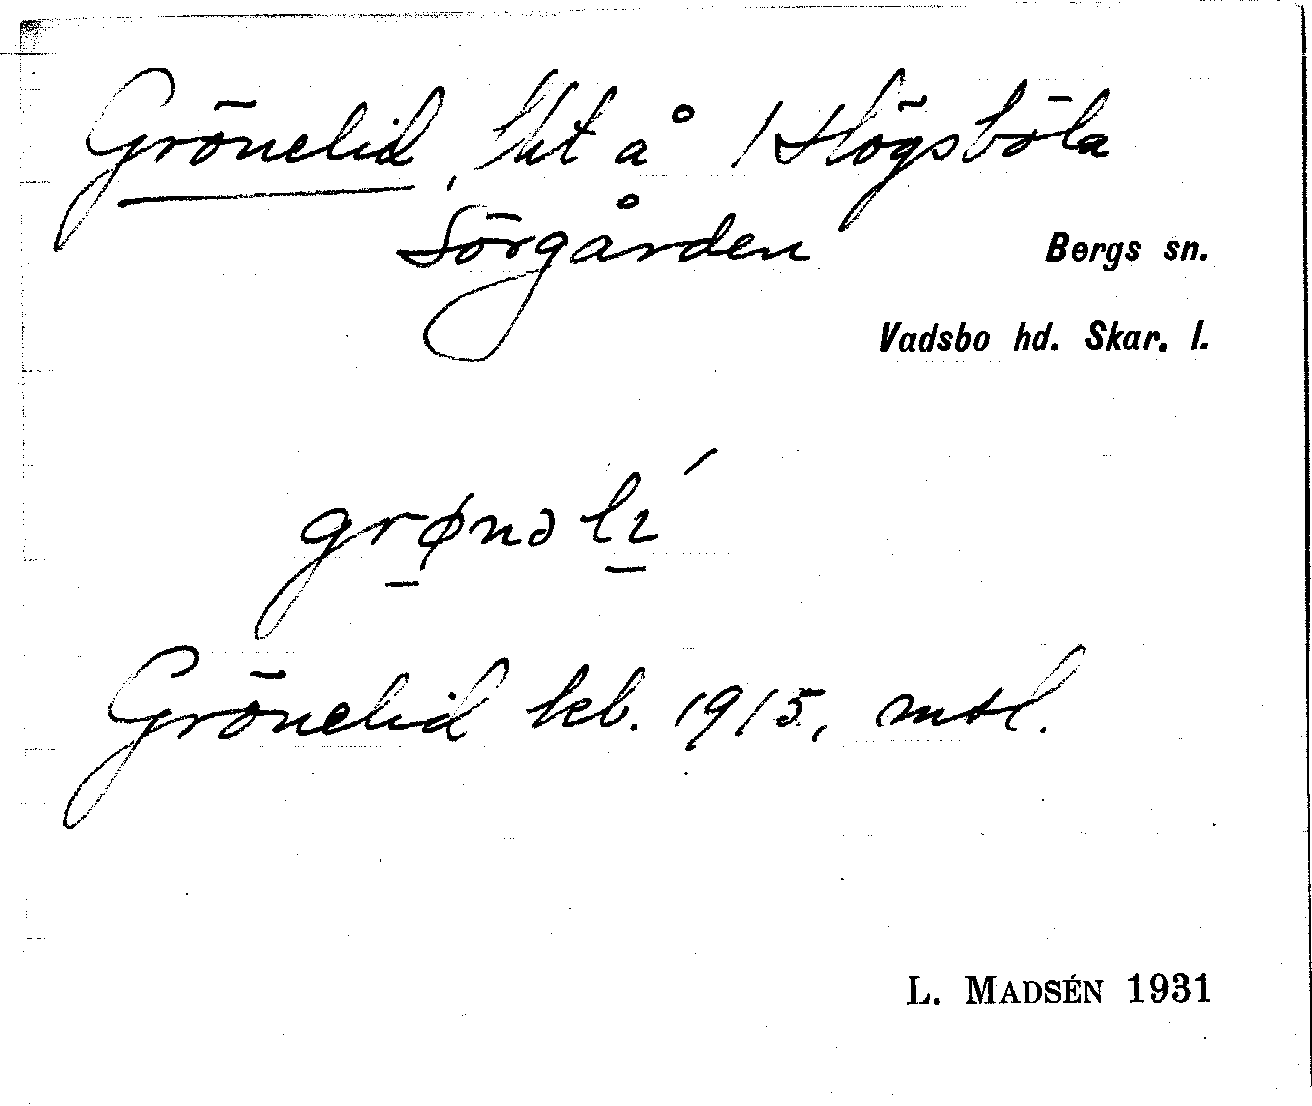 Grönelid, lht å 1 Högsböla
Sörgården
Bergs sn.
Vadsbo hd. Skar. l.
grønə lı´
Grönelid kb. 1915, mtl.
L. MADSÉN 1931